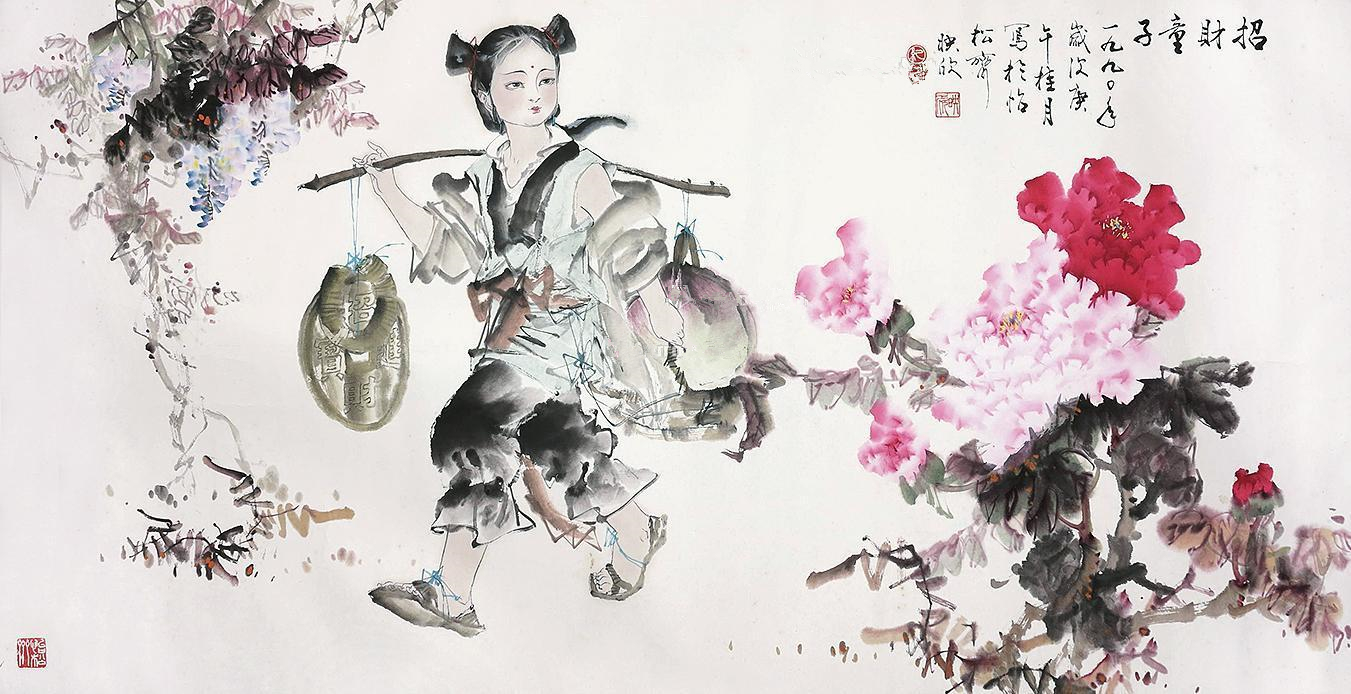 招財童子
一九九〇年
歲次庚
午桂月
寫於怡
松齋
映欣
招財進寶